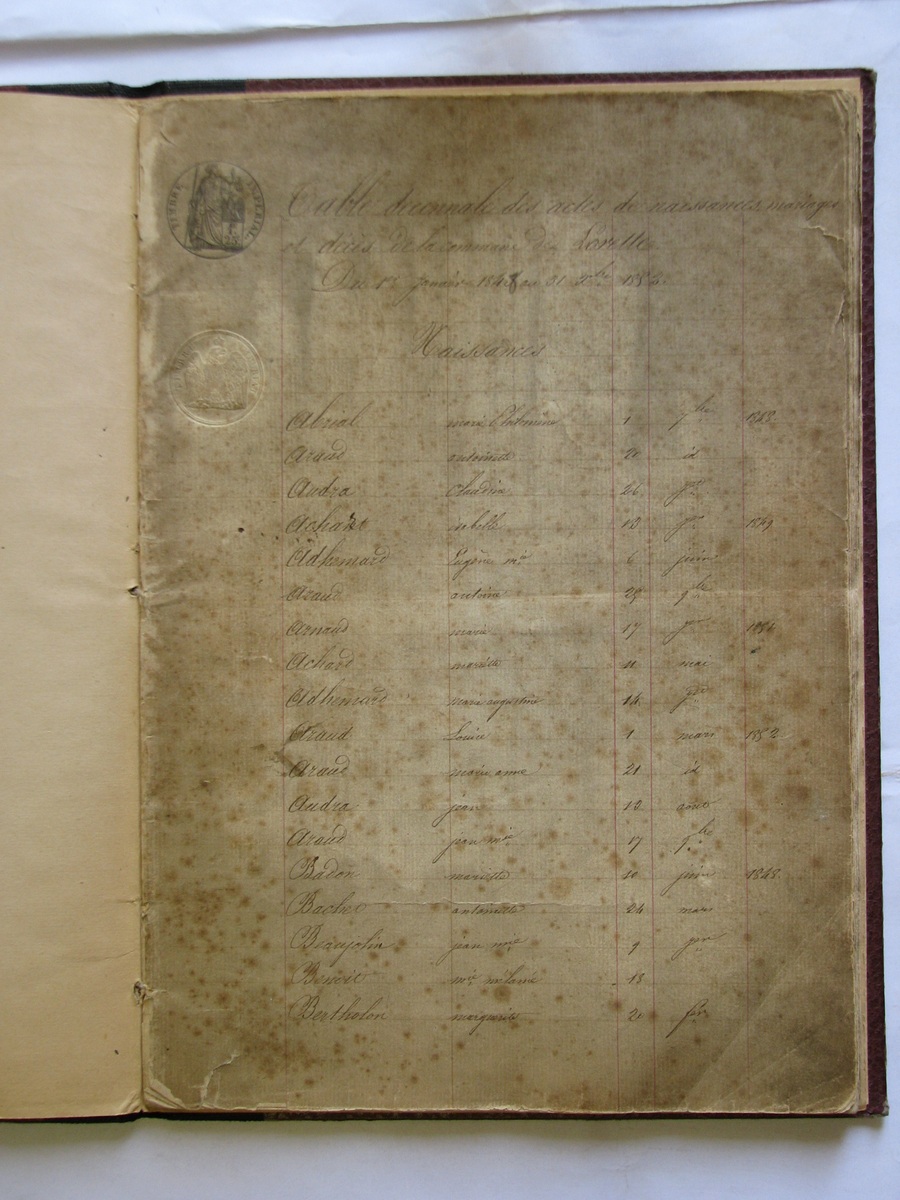 TIMBRE IMPERIAL
Table decennale des actes de naissances, mariages
et décès de la commune de Lorette
Du 1er Janvier 1848 au 31 Xbre 1852
Naissances
Abrial marie 1 7bre 1848
Araud antoinette 20 id
Audra Claudine 26
Achard 13 1849
Adhemard Eugène mie 6 juin
Araud antoine 29 9bre
Arnaud marie 17
Achard mariette 11 mai
Adhemard marie augustine 14
Araud Louise 1 mars 1852
Araud marie anne 21 id
Audra jean 12 aout
Araud jean mie 17 9bre
Badon mariette 10 juin 1848
Bachet antoinette 24 mars
Beaujolin jean mie 9
Benoit mie mélanie 13
Bertholon marguerite 20 fer